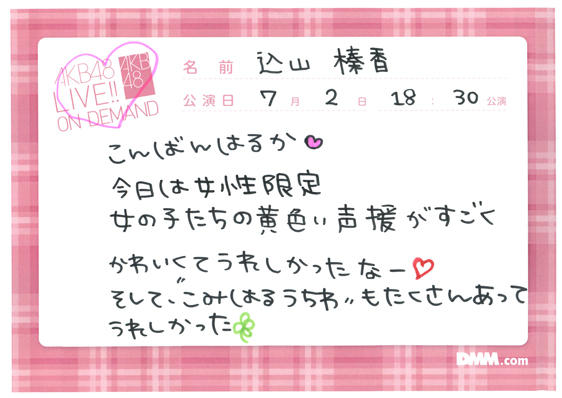 AKB48
LIVE!!
ON DEMAND
AKB
48
名前 込山 榛香
公演日 7月2日 18:30公演
こんばんはるか
今日は女性限定
女の子たちの黄色い声援がすごく
かわいくてうれしかったなー
そして、"こみはるうちわ"もたくさんあって
うれしかった
DMM.com